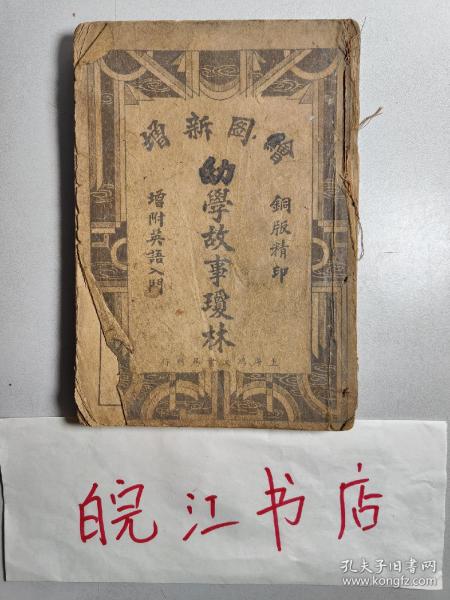 繪圖新增
銅版精印
幼學故事瓊林
增附英語入門
皖江书店
孔夫子旧书网
www.kongfz.com